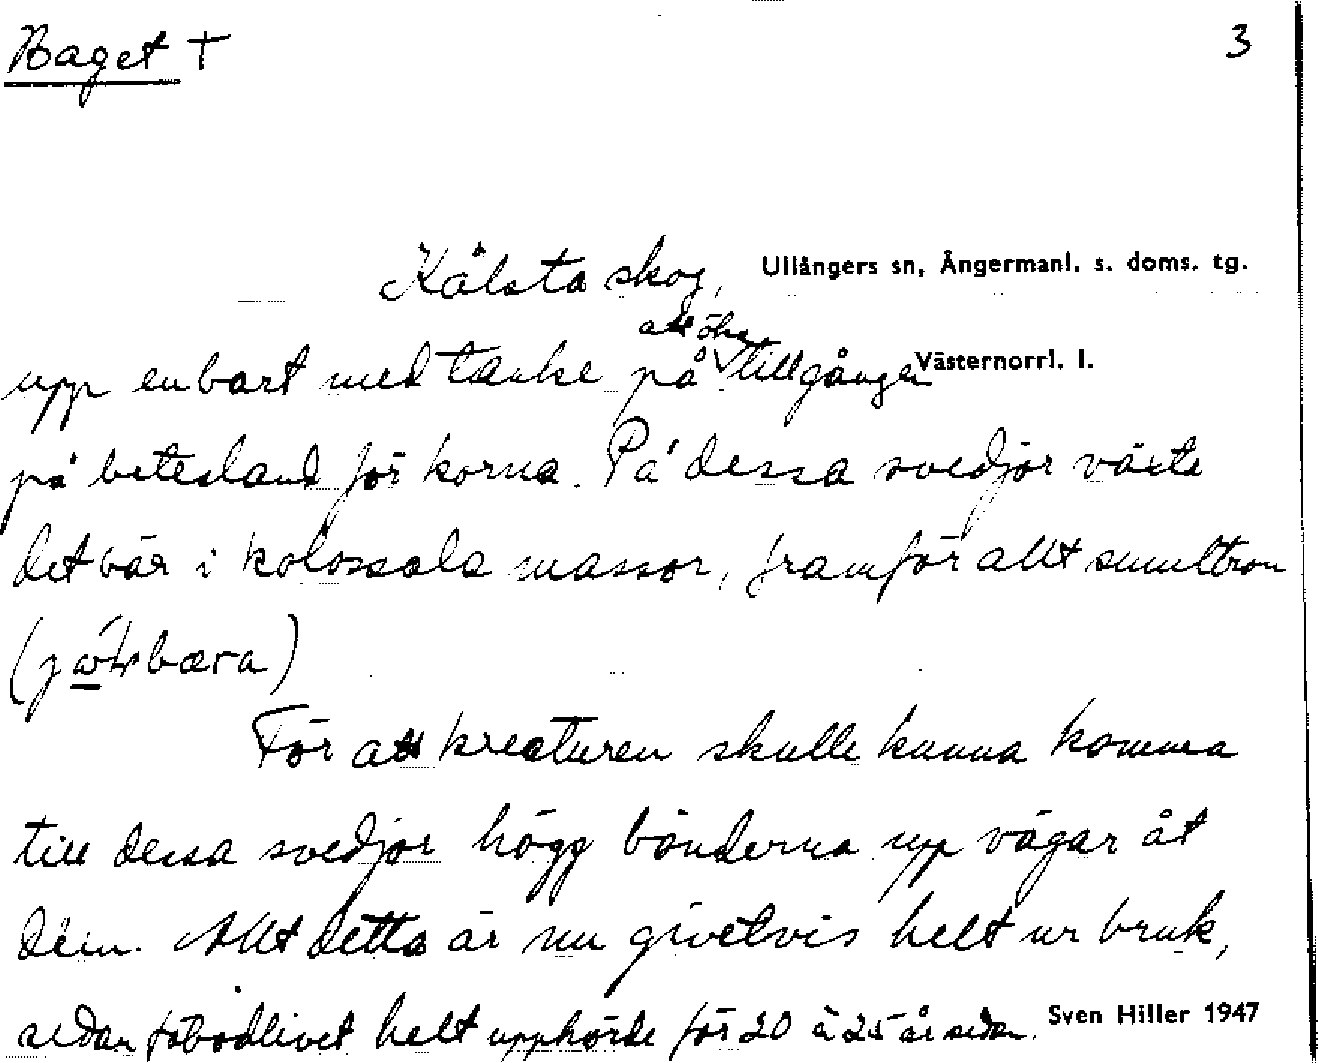 Baget † 3
Kålsta skog, Ullångers sn, Ångermanl. s. doms. tg.
att öka
upp enbart med tanke på tillgången Västernorrl. l.
på betesland för korna. På dessa svedjor växte
det bär i kolossala massor, framför allt smultron
För att kreaturen skulle kunna komma
till dessa svedjor högg bönderna upp vägar åt
dem. Allt detta är nu givetvis helt ur bruk,
sedan fäbodlivet helt upphörde för 20 à 25 år sedan. Sven Hiller 1947